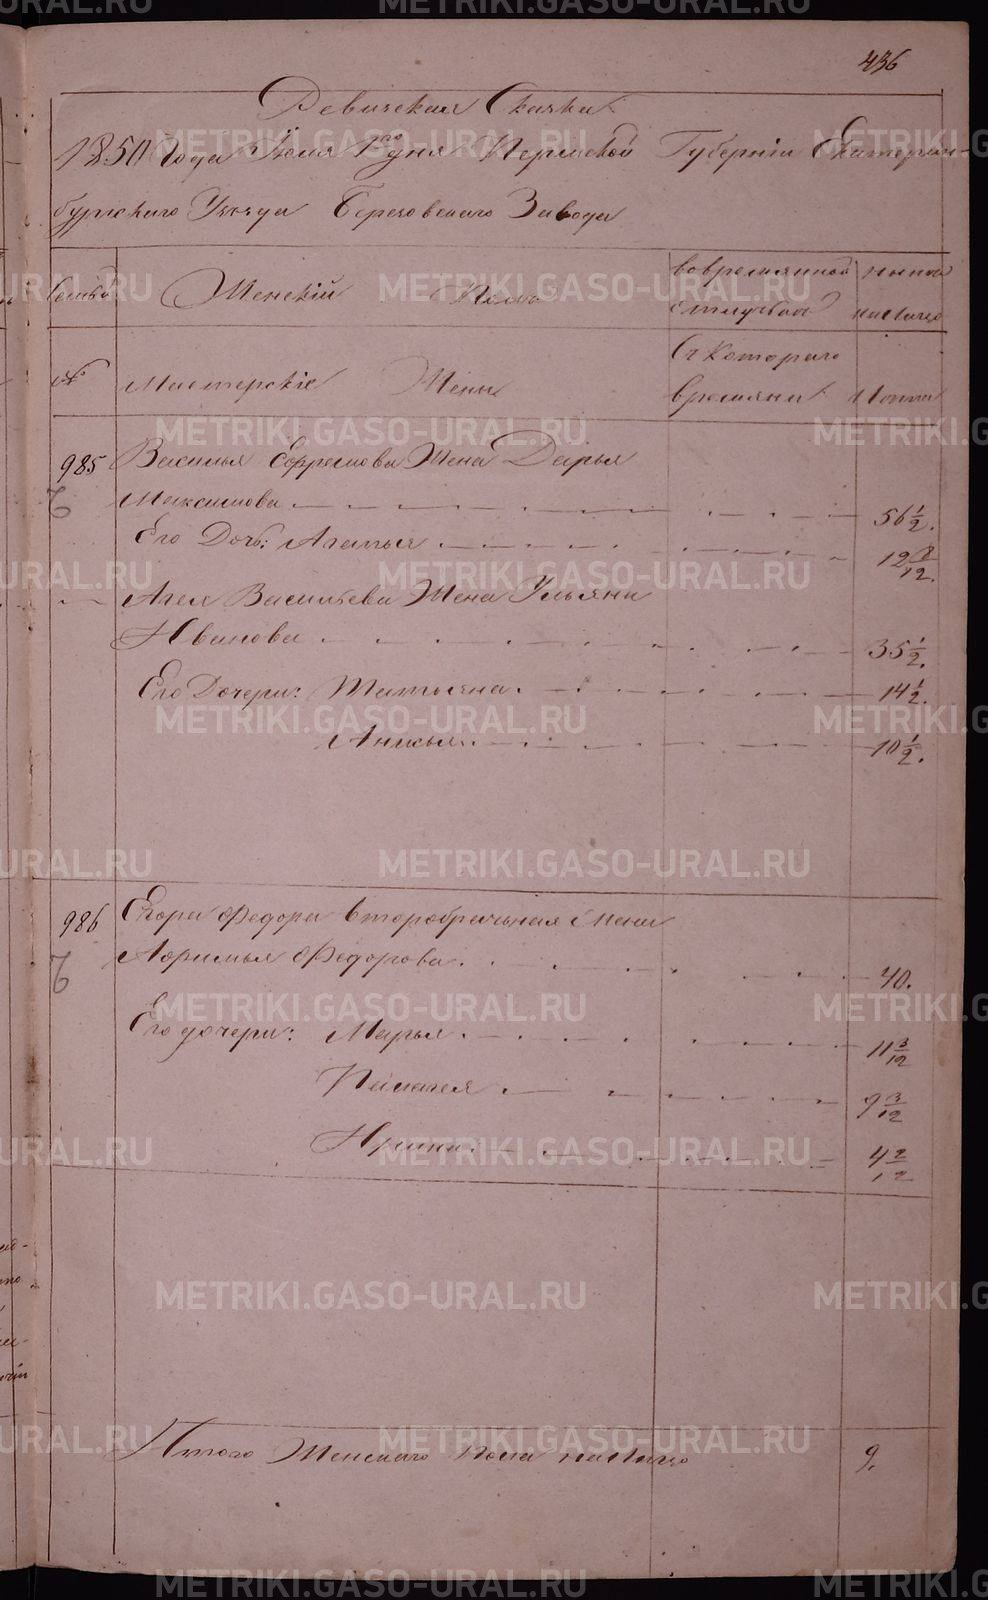 436
Ревизская Сказка
1850 Года Июля 1го дня Пермской Губерніи Екатерин-
бургскаго Уѣзда Березовскаго Завода
Семьи Женскій Полъ вовремянной отлучкѣ ныне налицо
№ Мастерскіе Жены Съ Котораго времяни Лѣтъ
985 Василья Ефремова Жена Дарья
Максимова 56 1/2.
Его Дочь: Агапья 12 8/12.
Агея Васильева Жена Ульяна
Иванова 35 1/2.
Его Дочери: Татьяна 14 1/2.
Анисья 10 1/2.
986 Егора Федора второбрачная Жена
Афимья Федорова 40.
Его дочери: Марья 11 3/12
Пелагея 9 3/12
Ирина 4 2/12
Итого Женскаго Пола налицо 9.
METRIKI.GASO-URAL.RU